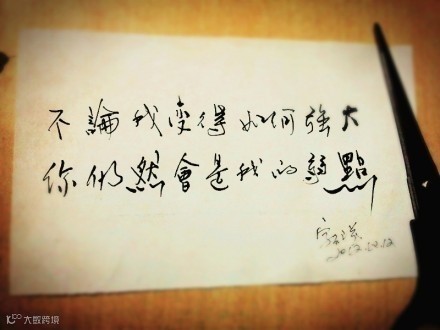 不論我變得如何強大
你仍然會是我的弱點
2012.12.12
大数跨境